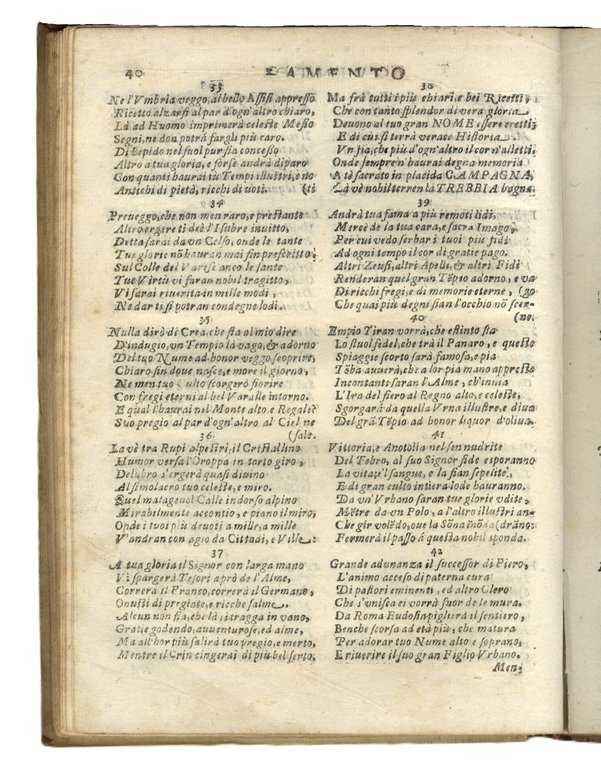 40
LAMENTO
33
Ne l'Vmbria veggo, al bello Assisi appresso
Ricetto alzarsi al par d'ogn'altro chiaro,
Là ad Huomo imprimerà celeste Messo
Segni, ne don potrà fargli più caro.
Di Lepido nel suol pur sia concesso
Altro a tua gloria, e forse andrà di paro
Con quanti haurai tu Tempi illustri, e no
Antichi di pietà, ricchi di uoti. (ti
34
Preueggo, che non men raro, e prestante
Altro ergere ti deè l'Isubre inuitto,
Detta sarai da vn Celso, onde le tante
Tue glorie nō hauran mai fin prescritto;
Sul Colle del Varese anco le sante
Tue Virtù vi furan nobil tragitto,
Vi sarai riuerita in mille modi,
Ne dar ti si potran condegne lodi.
35
Nulla dirò di Crea, che sta al mio dire
D'indugio, vn Tempio là vago, & adorno
Del tuo Nume ad honor veggo scoprire,
Chiaro fin doue nasce, e more il giorno,
Ne men tuo Culto scorgerò fiorire
Con fregi eterni al bel Varalle intorno.
E qual l'haurai nel Monte alto e Regale?
Suo pregio al par d'ogn'altro al Ciel ne
(sale.
36
La vè tra Rupi alpestri, il Cristallino
Humor versa l'Oroppa in torto giro,
Delubro s'ergerà quasi diuino
Al simolacro tuo celeste, e miro.
Quel malageuol Calle in dorso alpino
Mirabilmente acconcio, e piano il miro,
Onde i tuoi più deuoti a mille, a mille
V'andran con agio da Cittadi, e Ville.
37
A tua gloria il Signor con larga mano
Vi spargerà Tesori aprò de l'Alme,
Correrà il Franco, correrà il Germano,
Onusti di pregiate, e ricche salme.
Alcun non fia, che là si tragga in vano,
Grati e godendo, auuenturose, ed alme,
Ma all'hor più salirà tuo pregio, e merto,
Mentre il Crin cingerai di più bel serto,
38
Ma frà tutti i più chiari, e bei Ricetti,
Che con tanto splendor di vera gloria
Deuono al tuo gran NOME essere eretti,
E di cui si terrà verace Historia
Vn fia, che più d'ogn'altro il cor n'alletti,
Onde sempre n'haurai degna memoria
A tè sacrato in placida CAMPAGNA,
Là vè nobil terren la TREBBIA bagna.
39
Andrà tua fama a più remoti lidi,
Mercè de la tua cara, e sacra Imago,
Per cui vedo serbar i tuoi più fidi
Ad ogni tempo il cor di gratie pago.
Altri Zeusi, altri Apelli, & altri Fidi
Renderan quel gran Tēpio adorno, e va
Di ricchi fregi, e di memorie eterne, (go
Che quai più degni sian l'occhio nō scer-
(ne.
40
Empio Tiran vorrà, che estinto sia
Lo stuol fidel, che trà il Panaro, e queste
Spiaggie scorto sarà famosa, e pia
Tōba auuerà, che a lor pia mano appreste
Incontanti saran l'Alme, ch'inuia
L'Ira del fiero al Regno alto, e celeste,
Sgorgarà da quella Vrna illustre, e diua
Del grā Tēpio ad honor liquor d'oliua.
41
Vittoria, e Anotolia nel sen nudrite
Del Tebro, al suo Signor fide esporanno
La vita, e'l sangue, e la sian sepelite,
E di gran culto intiera lode hauranno.
Da vn' Vrbano saran tue glorie vdite,
Mētre da vn Polo, a l'altro illustri an-
Che gir volēdo, oue la Sōna inōda (dranno:
Fermerà il passo à questa nobil sponda.
42
Grande adunanza il successor di Piero,
L'animo acceso di paterna cura
Di pastori eminenti, ed altro Clero
Che s'vnisca ei vorrà fuor de le mura.
Da Roma Eudossi piglierà il sentiero,
Benche scorsa ad età più, che matura
Per adorar tuo Nume alto e soprano,
E riuerire il suo gran Figlio Vrbano.
Men;